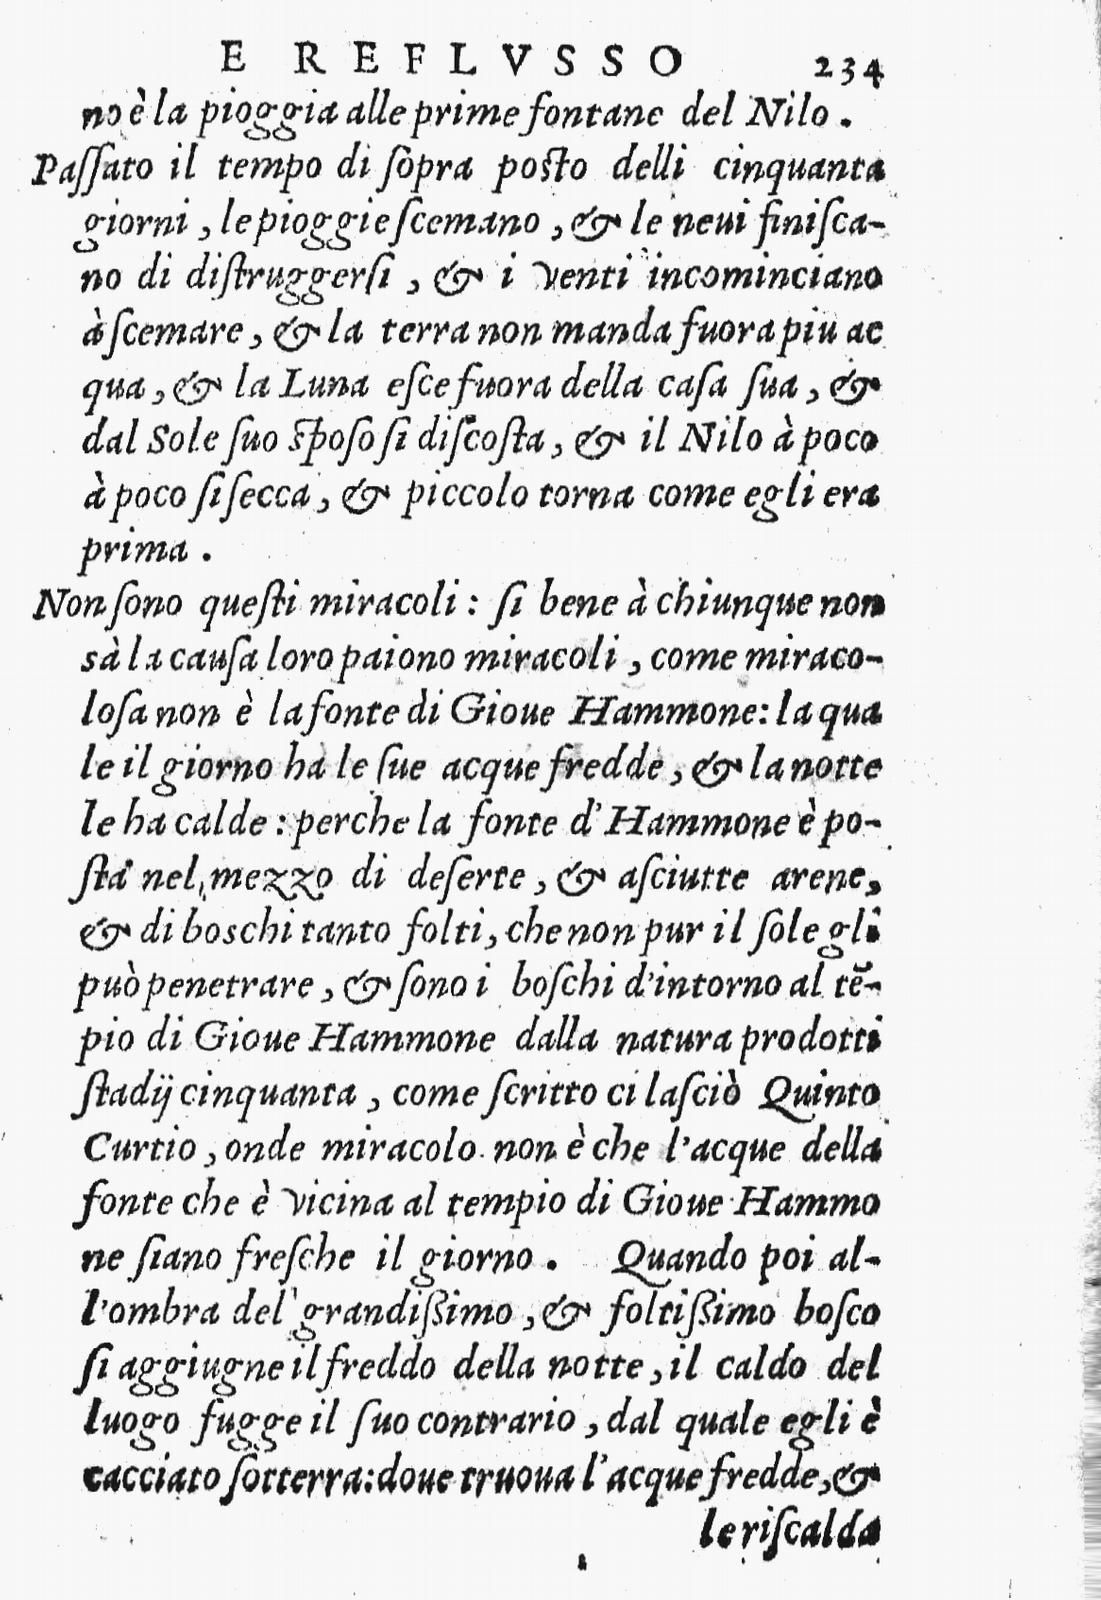 E REFLVSSO 234
no è la pioggia alle prime fontane del Nilo.
Paſſato il tempo di ſopra poſto delli cinquanta
giorni, le pioggie ſcemano, & le neui finiſca-
no di diſtruggerſi, & i venti incominciano
à ſcemare, & la terra non manda fuora piu ac
qua, & la Luna eſce fuora della caſa ſua, &
dal Sole ſuo ſpoſo ſi diſcoſta, & il Nilo à poco
à poco ſi ſecca, & piccolo torna come egli era
prima.
Non ſono queſti miracoli: ſi bene à chiunque non
sà la cauſa loro paiono miracoli, come miraco-
loſa non è la fonte di Gioue Hammone: la qua
le il giorno ha le ſue acque fredde, & la notte
le ha calde: perche la fonte d'Hammone è po-
ſta nel mezzo di deſerte, & aſciutte arene,
& di boschi tanto folti, che non pur il ſole gli
può penetrare, & ſono i boſchi d'intorno al tē-
pio di Gioue Hammone dalla natura prodotti
ſtadij cinquanta, come ſcritto ci laſciò Quinto
Curtio, onde miracolo non è che l'acque della
fonte che è vicina al tempio di Gioue Hammo
ne ſiano freſche il giorno. Quando poi al-
l'ombra del grandiſſimo, & foltiſſimo boſco
ſi aggiugne il freddo della notte, il caldo del
luogo fugge il ſuo contrario, dal quale egli è
cacciato ſotterra: doue truoua l'acque fredde, &
le riſcalda